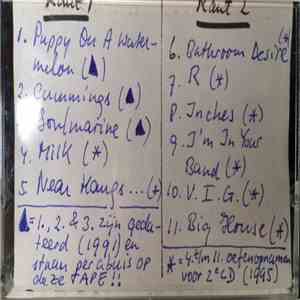 Kant 1
1. Puppy On A Water-
melon (▲)
2. Cummings (▲)
Soulmarine (▲)
4. Milk (*)
5. Near Hangs... (*)
▲=1., 2. & 3. zijn geda-
teerd (1991) en
staan per abuis op
deze TAPE!!
Kant 2
6. Bathroom Desire (*)
7. R (*)
8. Inches (*)
9. I'm In Your
Band (*)
10. V. I. G. (*)
11. Big House (*)
* = 4. t/m 11. zijn opgenomen
voor 2e CD (1995)